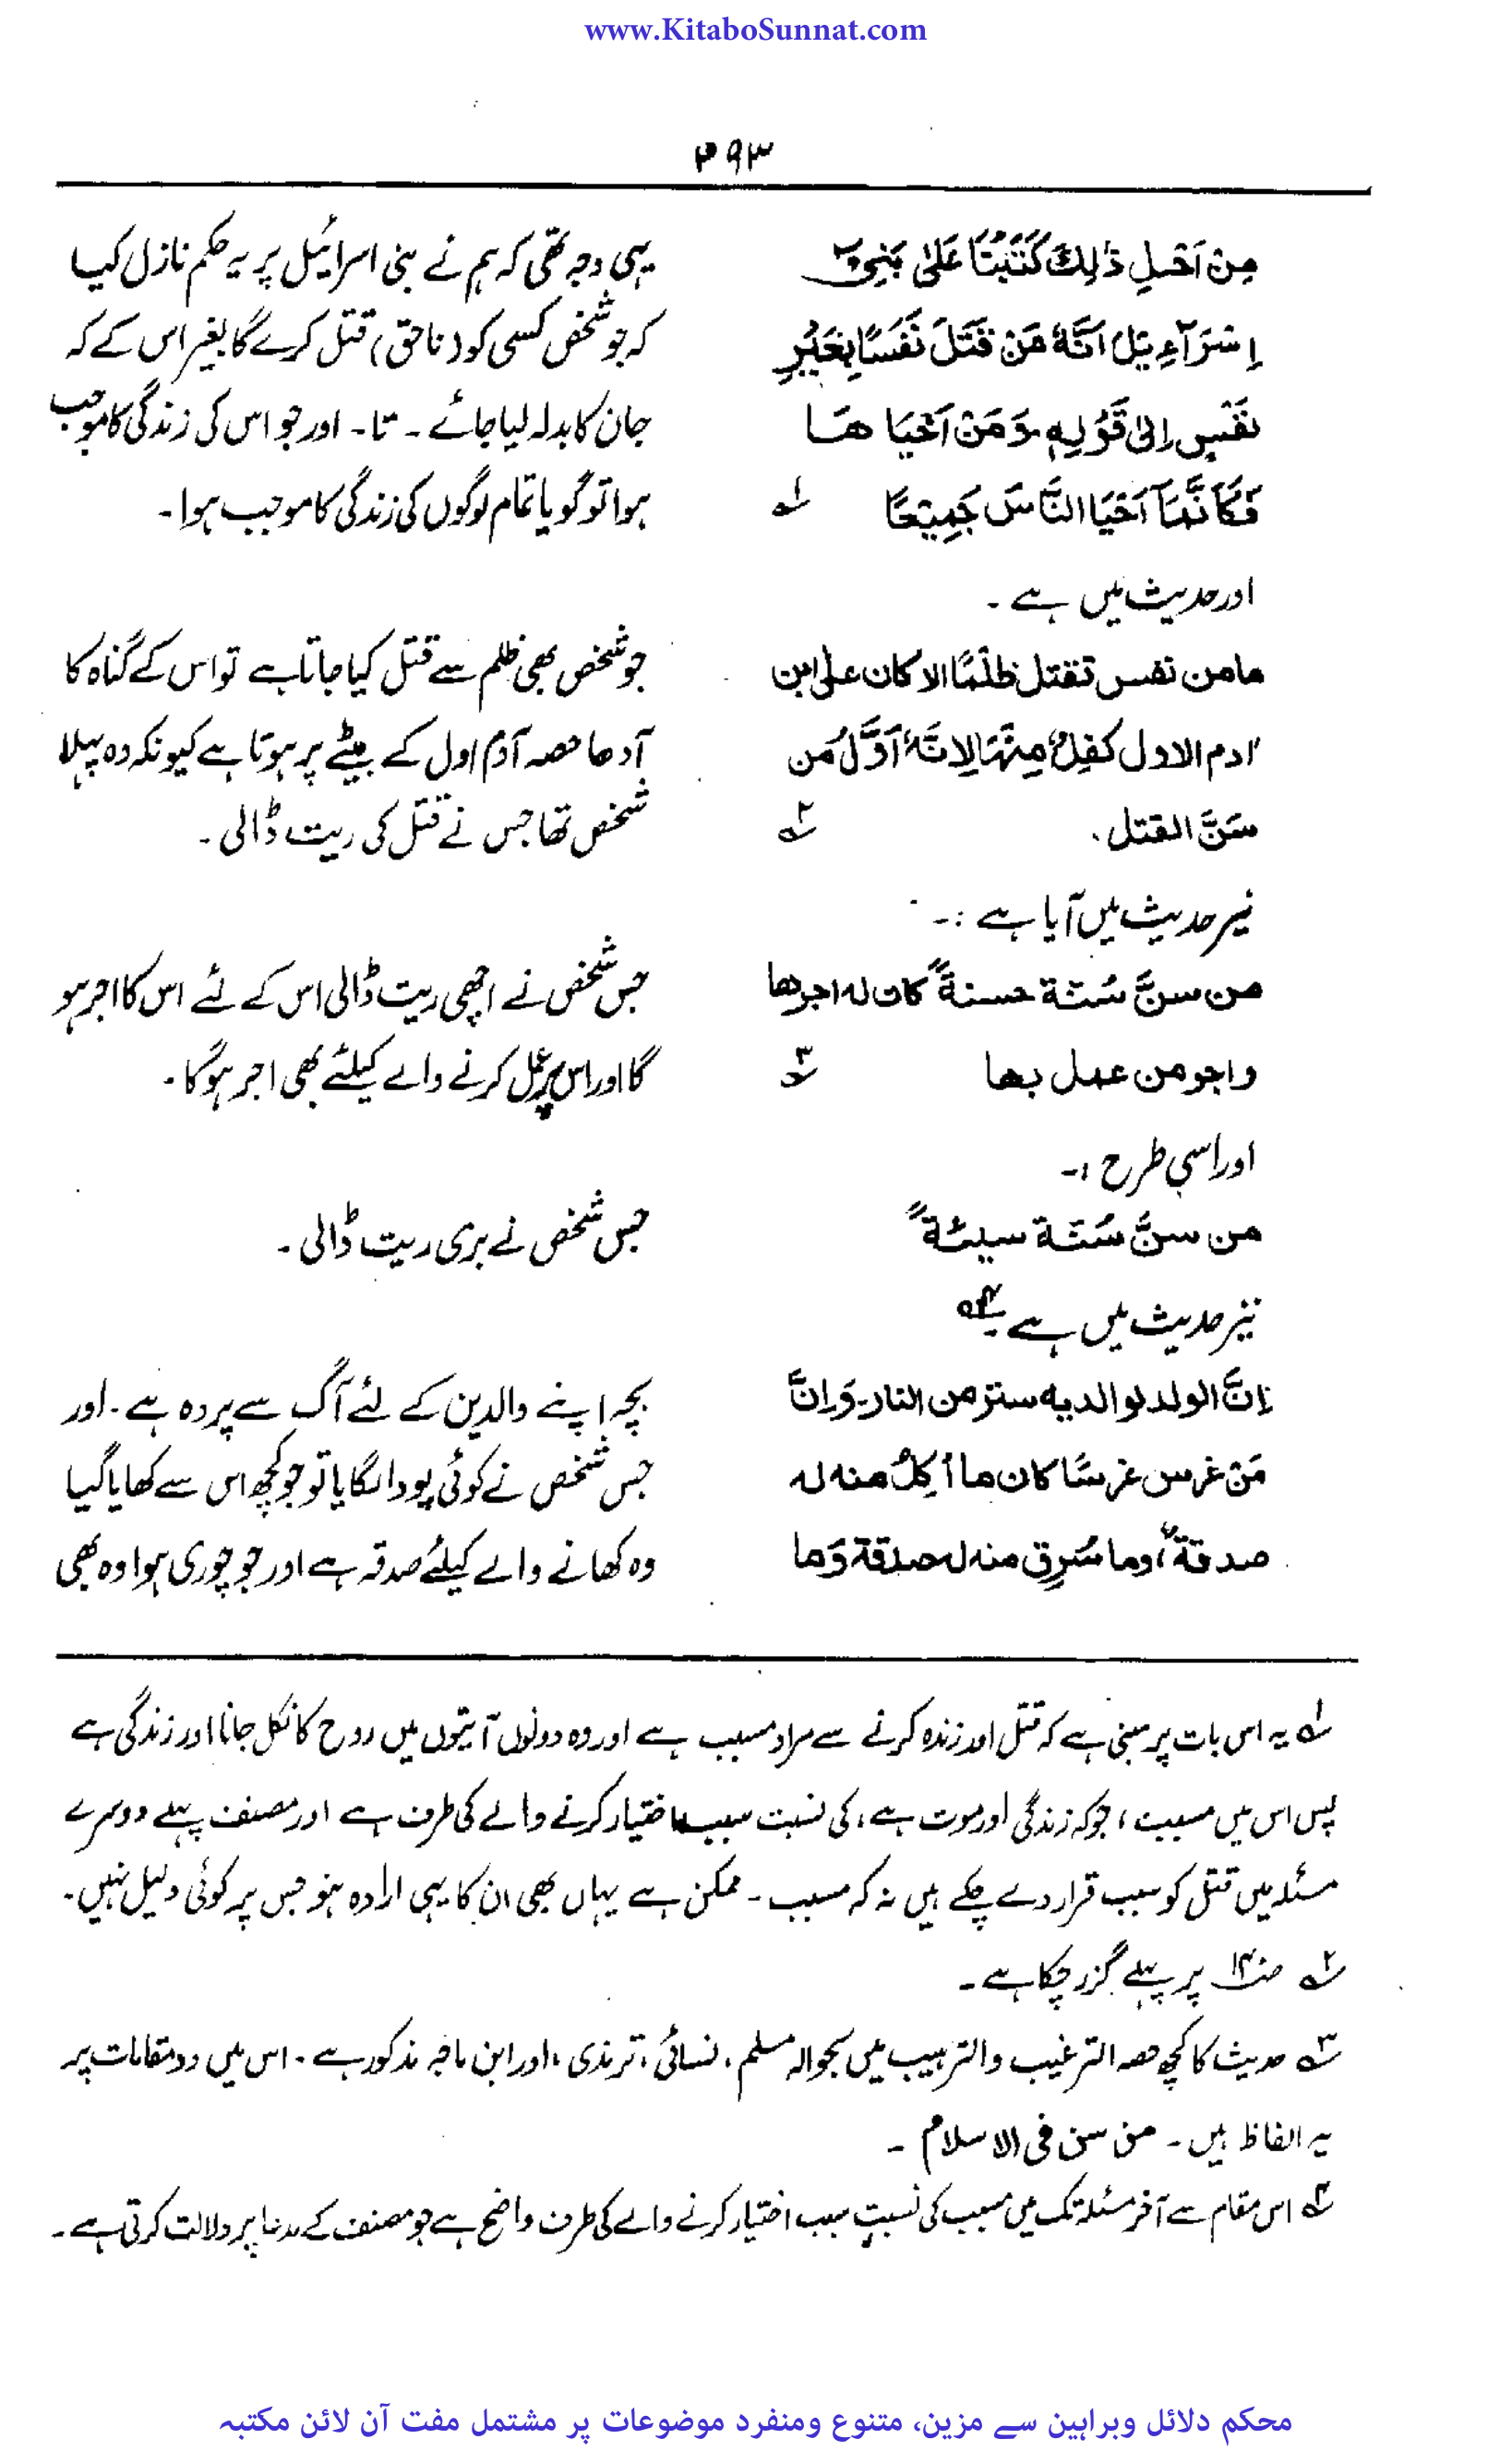 www.KitaboSunnat.com
۲۹۳
مِنْ اَجْلِ ذٰلِكَ كَتَبْنَا عَلٰى بَنِىْٓ
اِسْرَآءِيْلَ اَنَّهٗ مَنْ قَتَلَ نَفْسًا بِغَيْرِ
نَفْسٍ اِلىٰ قَوْلِهٖ وَمَنْ اَحْيَا هَا
فَكَاَنَّمَآ اَحْيَا النَّاسَ جَمِيْعًا ؎۱
یہی وجہ تھی کہ ہم نے بنی اسرائیل پر یہ حکم نازل کیا
کہ جو شخص کسی کو (ناحق) قتل کرے گا بغیر اس کے کہ
جان کا بدلہ لیا جائے ۔ تا ۔ اور جو اس کی زندگی کا موجب
ہوا تو گویا تمام لوگوں کی زندگی کا موجب ہوا ۔
اور حدیث میں ہے ۔
مامن نفس تقتل ظلمًا الا كان على ابن
ادم الاول كفلٌ مِنْهَا لِاِنَّهٗ اَوَّلُ مَن
سَنَّ القتل . ؎۲
جو شخص بھی ظلم سے قتل کیا جاتا ہے تو اس کے گناہ کا
آدھا حصہ آدم اول کے بیٹے پر ہوتا ہے کیونکہ وہ پہلا
شخص تھا جس نے قتل کی ریت ڈالی ۔
نیز حدیث میں آیا ہے :۔
من سنَّ سُنّة حسنةً كان له اجرها
واجر من عمل بها ؎۳
جس شخص نے اچھی ریت ڈالی اس کے لئے اس کا اجر ہو
گا اور اس پر عمل کرنے والے کیلئے بھی اجر ہوگا ۔
اور اسی طرح :۔
من سنَّ سُنّة سيئةً
جس شخص نے بری ریت ڈالی ۔
نیز حدیث میں ہے ؎۴
اِنَّ الولد لوالديه ستر من النار ۔ وَاِنَّ
مَنْ غرس غرسًا كان ما اُكِلُ منه له
صدقةٌ، وما سُرِق منه له صدقة وَما
بچہ اپنے والدین کے لئے آگ سے پردہ ہے ۔ اور
جس شخص نے کوئی پودا لگایا تو جو کچھ اس سے کھایا گیا
وہ کھانے والے کیلئے صدقہ ہے اور جو چوری ہوا وہ بھی
؎۱ یہ اس بات پر مبنی ہے کہ قتل اور زندہ کرنے سے مراد مسبب ہے اور وہ دونوں آیتوں میں روح کا نکل جانا اور زندگی ہے
پس اس میں مسبب، جو کہ زندگی اور موت ہے، کی نسبت سبب اختیار کرنے والے کی طرف ہے اور مصنف پہلے دوسرے
مسئلہ میں قتل کو سبب قرار دے چکے ہیں نہ کہ مسبب ۔ ممکن ہے یہاں بھی ان کا یہی ارادہ ہو جس پر کوئی دلیل نہیں ۔
؎۲ پر پہلے گزر چکا ہے ۔
؎۳ حدیث کا کچھ حصہ الترغیب والترہیب میں بحوالہ مسلم، نسائی، ترمذی، اور ابن ماجہ مذکور ہے ۔ اس میں دو مقامات پر
یہ الفاظ ہیں ۔ من سن فی الاسلام ۔
؎۴ اس مقام سے آخر مسئلہ تک میں مسبب کی نسبت سبب اختیار کرنے والے کی طرف واضح ہے جو مصنف کے مدعا پر دلالت کرتی ہے ۔
محکم دلائل وبراہین سے مزین، متنوع ومنفرد موضوعات پر مشتمل مفت آن لائن مکتبہ